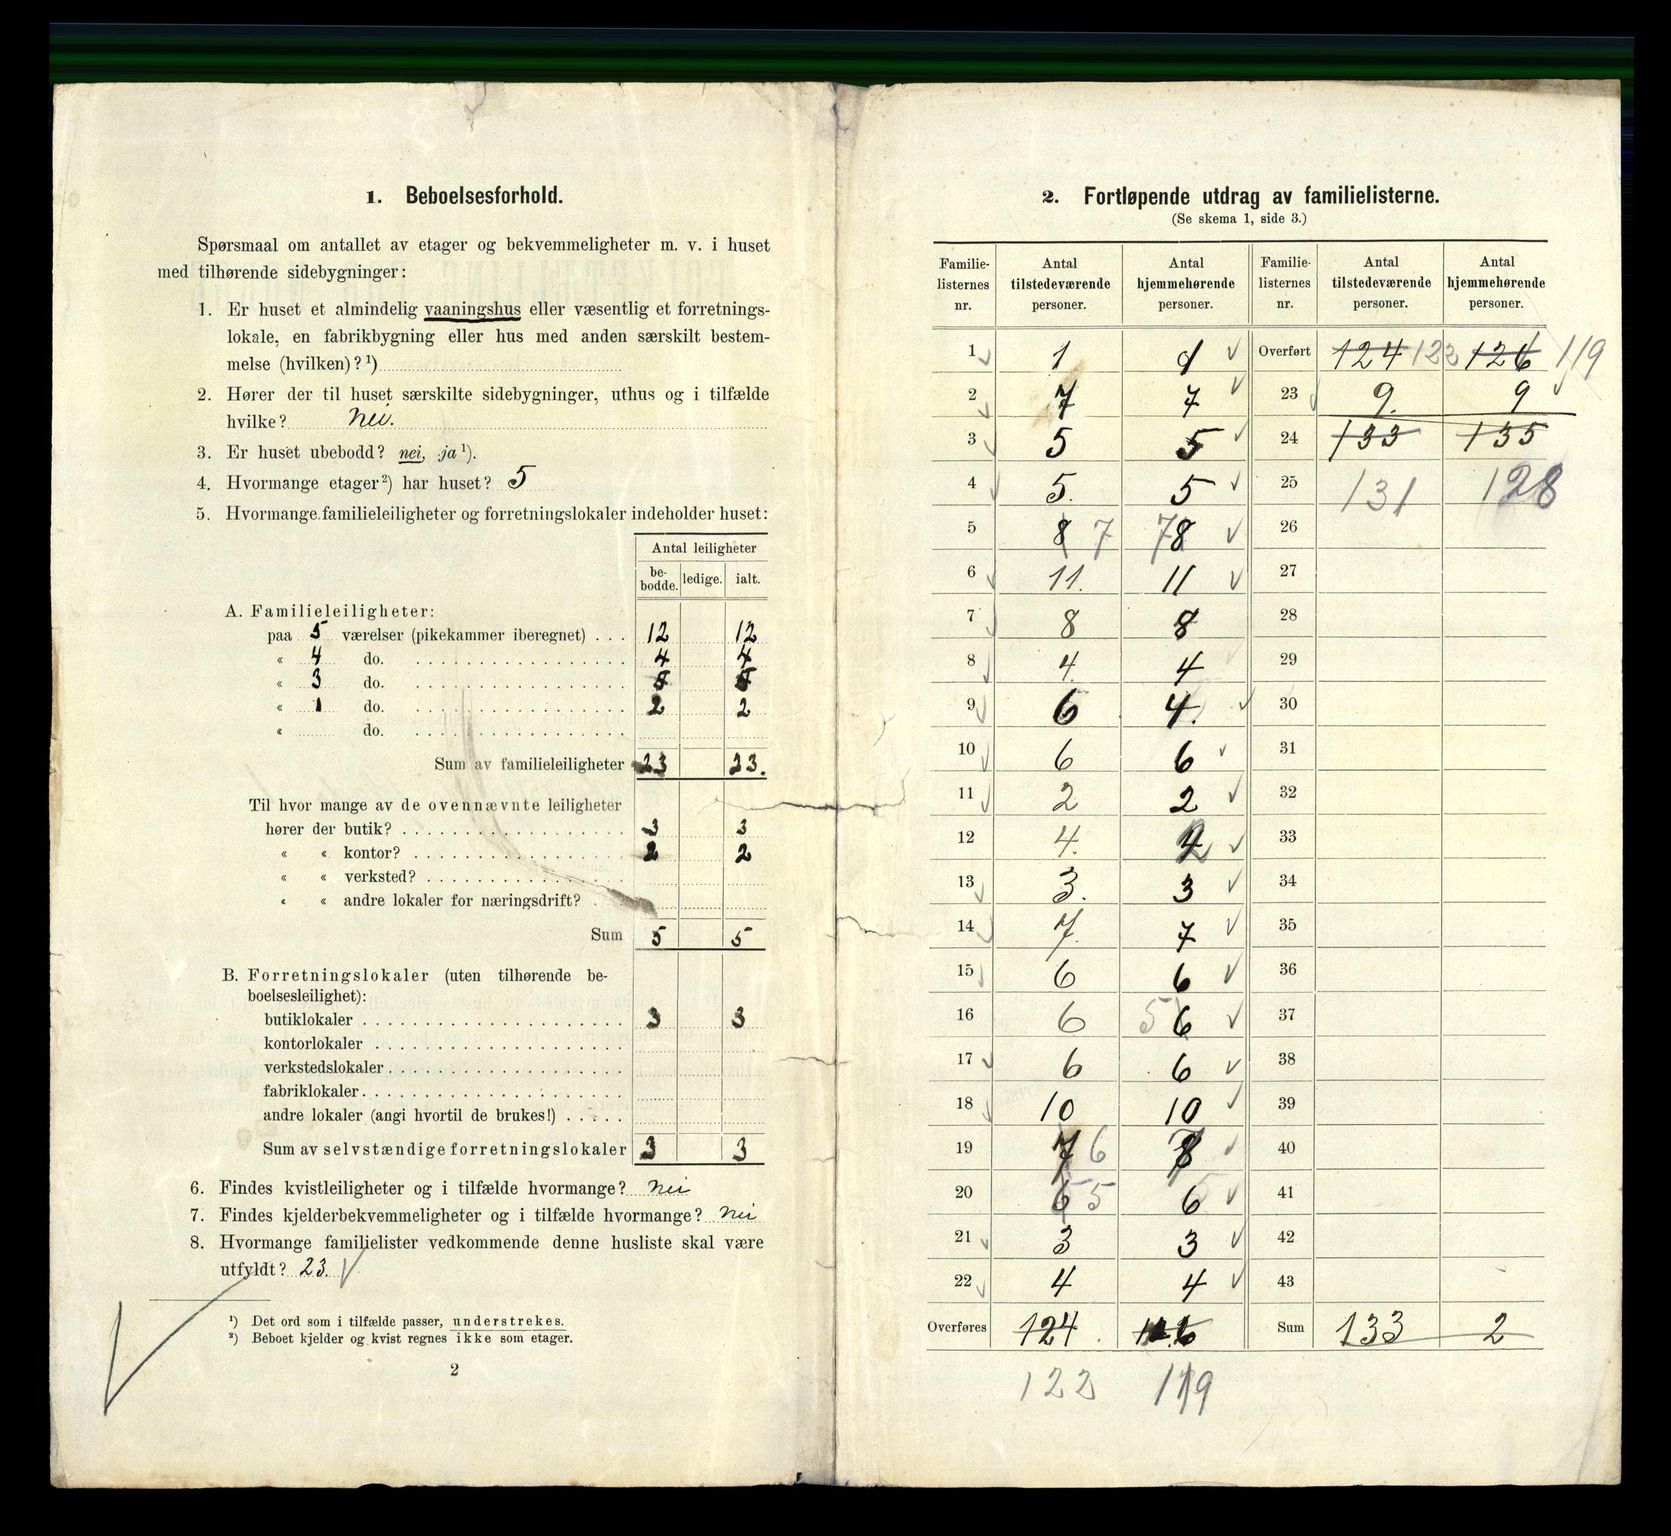 1. Beboelsesforhold.
Spørsmaal om antallet av etager og bekvemmeligheter m. v. i huset
med tilhørende sidebygninger:
1. Er huset et almindelig vaaningshus eller væsentlig et forretnings-
lokale, en fabrikbygning eller hus med anden særskilt bestem-
melse (hvilken)? ¹)
2. Hører der til huset særskilte sidebygninger, uthus og i tilfælde
hvilke? Nei.
3. Er huset ubebodd? nei, ja ¹).
4. Hvormange etager ²) har huset? 5
5. Hvormange familieleiligheter og forretningslokaler indeholder huset:
Antal leiligheter
be-
bodde. ledige. ialt.
A. Familieleiligheter:
paa 5 værelser (pikekammer iberegnet) . . . 12 12
« 4 do. 4 4
« 3 do.
« 1 do. 2 2
« do.
Sum av familieleiligheter 23 23.
Til hvor mange av de ovennævnte leiligheter
hører der butik? 3 3
« « kontor? 2 2
« « verksted?
« « andre lokaler for næringsdrift?
Sum 5 5
B. Forretningslokaler (uten tilhørende be-
boelsesleilighet):
butiklokaler 3 3
kontorlokaler
verkstedslokaler
fabriklokaler
andre lokaler (angi hvortil de brukes!)
Sum av selvstændige forretningslokaler 3 3
6. Findes kvistleiligheter og i tilfælde hvormange? Nei
7. Findes kjelderbekvemmeligheter og i tilfælde hvormange? Nei
8. Hvormange familielister vedkommende denne husliste skal være
utfyldt? 23.
¹) Det ord som i tilfælde passer, understrekes.
²) Beboet kjelder og kvist regnes ikke som etager.
2
2. Fortløpende utdrag av familielisterne.
(Se skema 1, side 3.)
Familie-
listernes
nr. Antal
tilstedeværende
personer. Antal
hjemmehørende
personer. Familie-
listernes
nr. Antal
tilstedeværende
personer. Antal
hjemmehørende
personer.
1 1 1 Overført 124 122 126 119
2 7 7 23 9. 9
3 5 5 24 133 135
4 5. 5 25 131 128
5 8 7 7 8 26
6 11. 11 27
7 8 8 28
8 4 4 29
9 6 4. 30
10 6 6 31
11 2 2 32
12 4. 2 33
13 3. 3 34
14 7. 7 35
15 6 6 36
16 6 5 6 37
17 6 6 38
18 10 10 39
19 7 6 8 40
20 6 5 6 41
21 3 3 42
22 4 4 43
Overføres 124. Sum 133 2
122 119